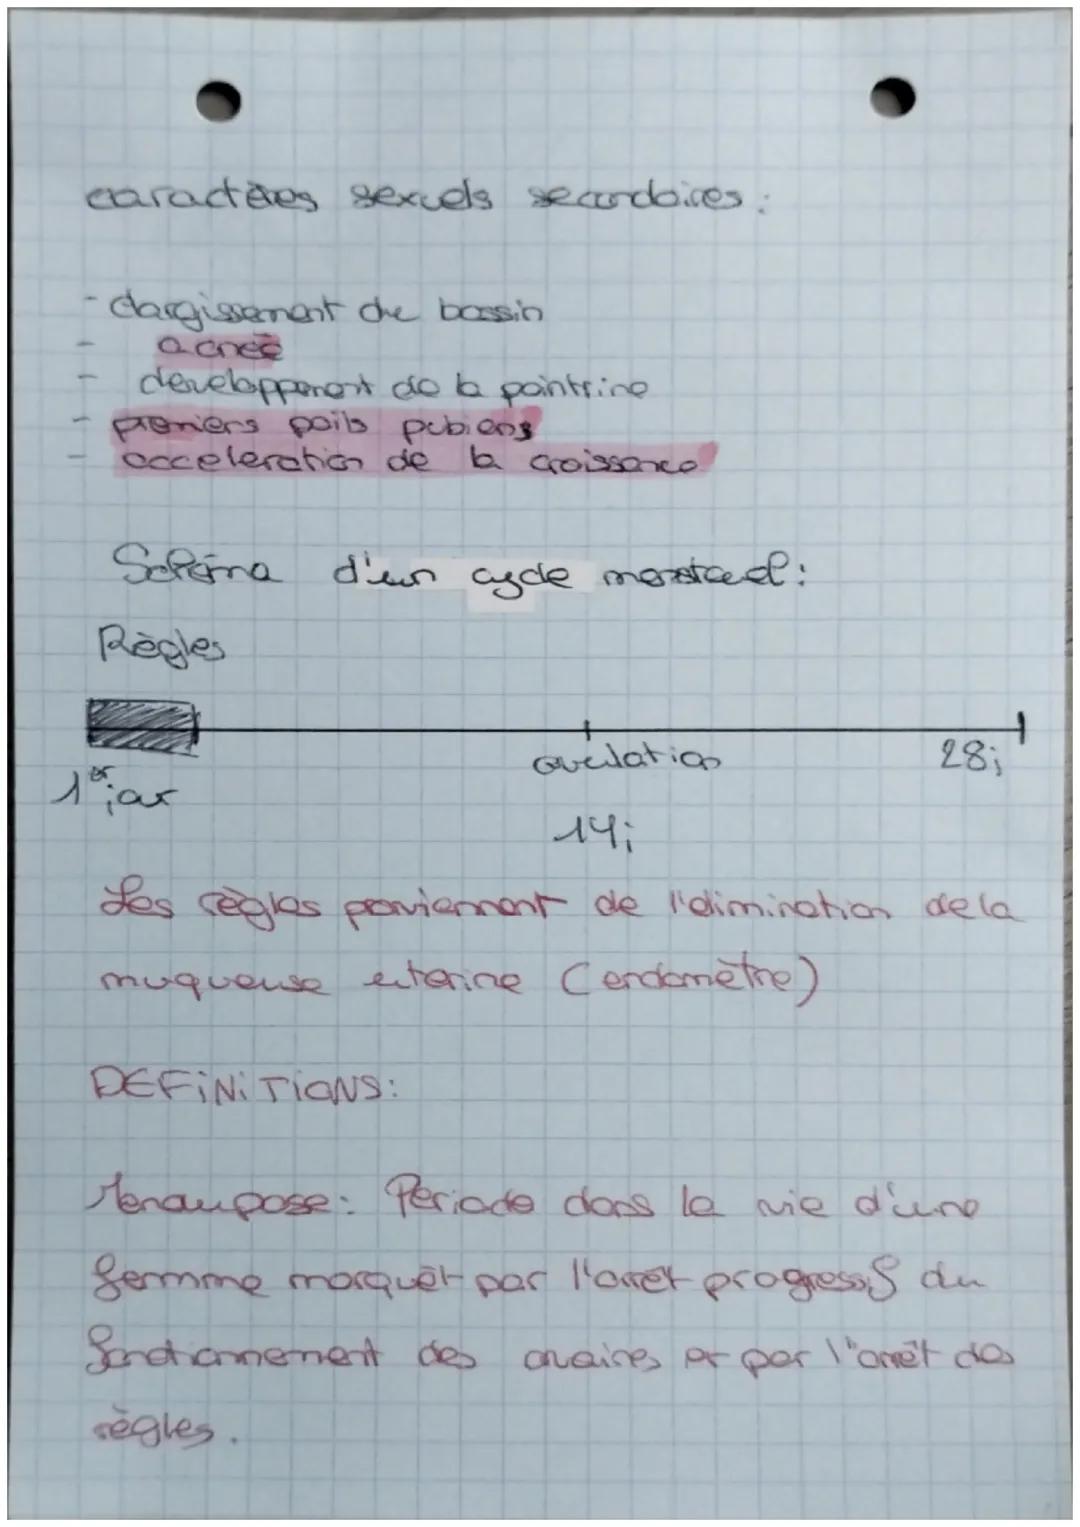 caractères sexuels secondaires :
- élargissement du bassin
- acnée
- developpement de la pointrine
- premiers poils pubiens
- acceleration de la croissance
Schéma d'un cycle menstruel :
Règles
ovulation 28j
1er jour
14j
Les règles proviennent de l'élimination de la
muqueuse uterine (endomètre)
DEFINITIONS:
Ménaupose : Période dans la vie d'une
femme marquèt par l'arrêt progressif du
fonctionnement des ovaires et par l'arrêt des
règles.